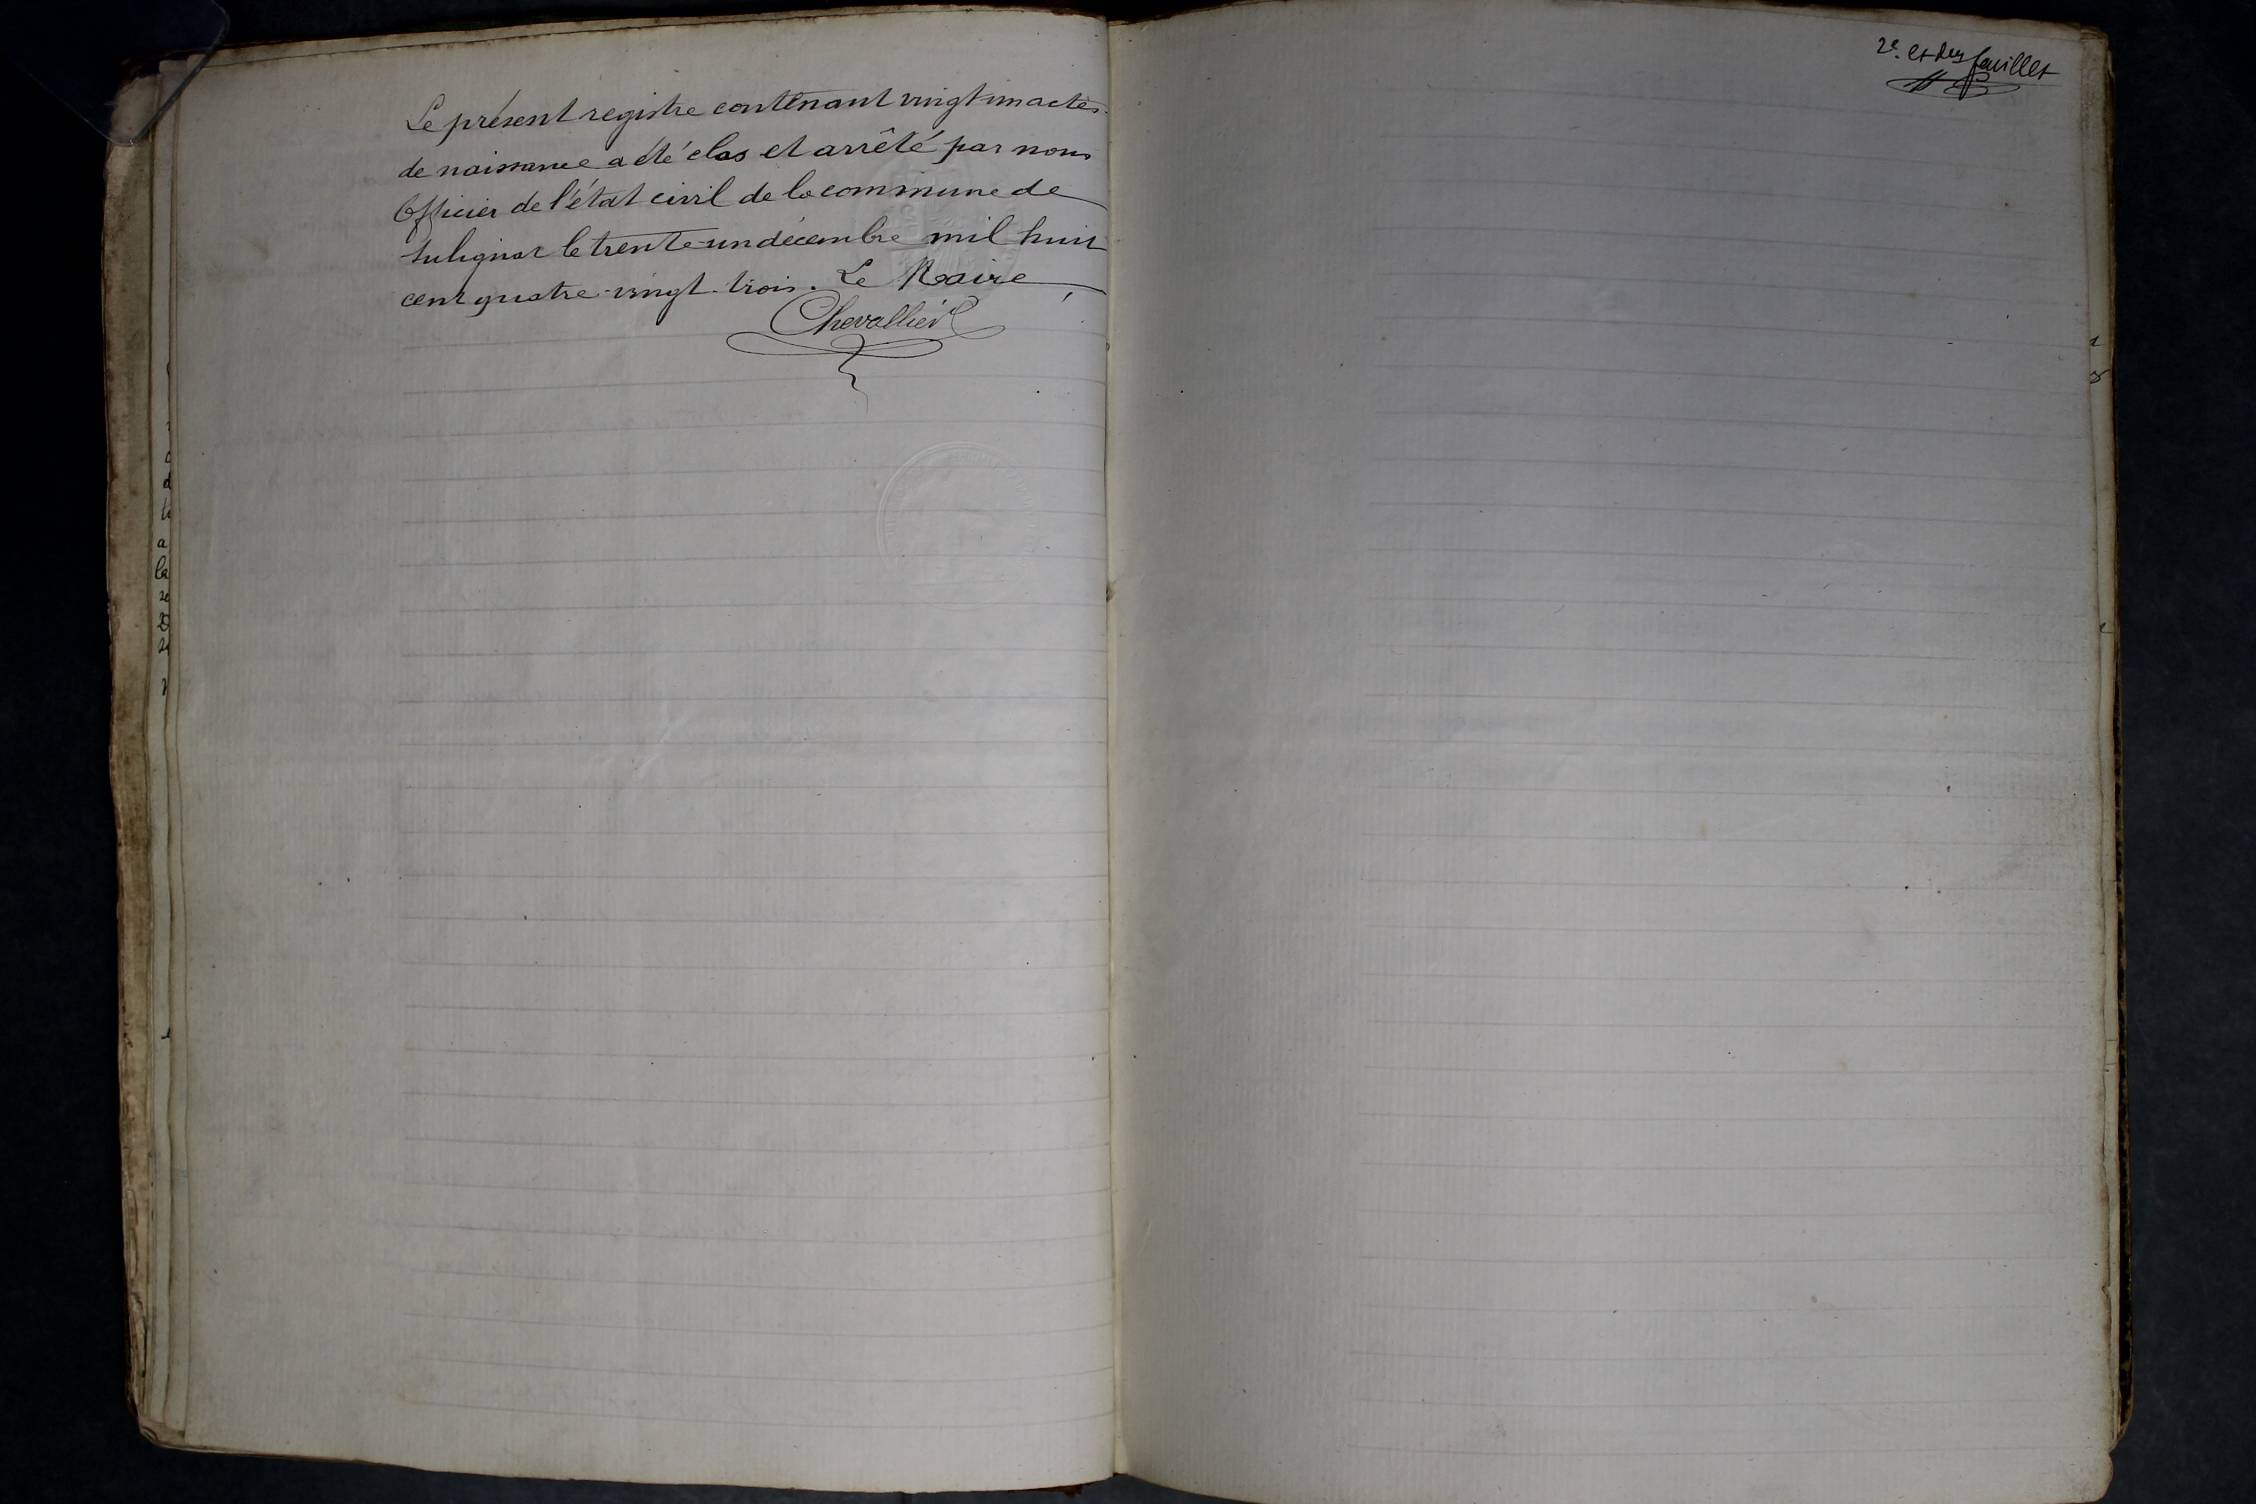 Le présent registre contenant vingt un actes
de naissance a été clos et arrêté par nous
Officier de l'état civil de la commune de
Sulignat le trente-un décembre mil huit
cent quatre-vingt-trois. Le Maire,
Chevallier
2e. et der feuillet